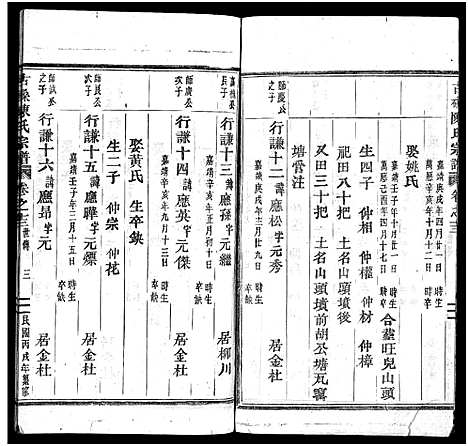 嘉靖庚戌年四月廿一日 時生
萬曆辛亥年十二月初二日 時卒
娶姚氏
嘉靖壬子年十月廿二日 時生
萬曆己酉年四月十七日 時卒
合塟旺兒山頭
生四子 仲相 仲權 仲材 仲樟
祀田八十把 土名山頭塘
又田三十把 土名山頭墳前胡公塘瓦窰
塘管注
師慶公之子
行謙十二 諱應松 字元秀
嘉靖庚戌年三月廿九日 時生 卒缺
居金杜
行謙十三 諱應孫 字元繼
嘉靖辛亥年十月十三日 時生 卒缺
居柳川
師廣公次子
行謙十四 諱應英 字元傑
嘉靖辛亥年九月十三日 時生 卒缺
居金杜
娶黄氏 生卒缺
生二子 仲宗 仲花
師武公次子
行謙十五 諱應驊 字元縹
嘉靖壬子年三月十五日 時生 卒缺
居金杜
師政公之子
行謙十六 諱應昂 字元
居金杜
陳氏宗譜 卷之三 世傳 三 民國丙戌年重修